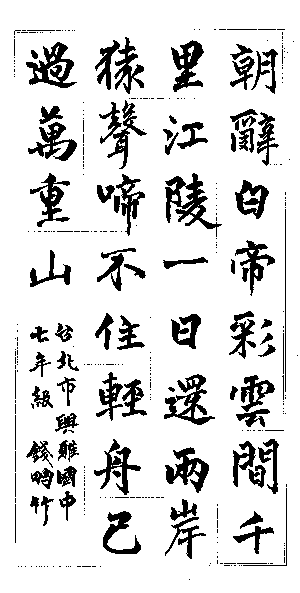 朝辭白帝彩雲間千
里江陵一日還兩岸
猿聲啼不住輕舟已
過萬重山
台北市興雅國中
七年級 錢時竹